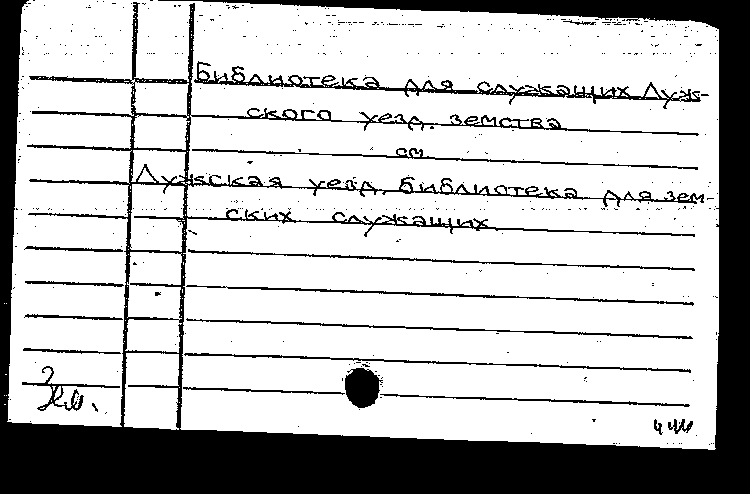 Библиотека для служащих Луж-
ского уезд. земства
см.
Лужская уезд. библиотека для зем-
ских служащих